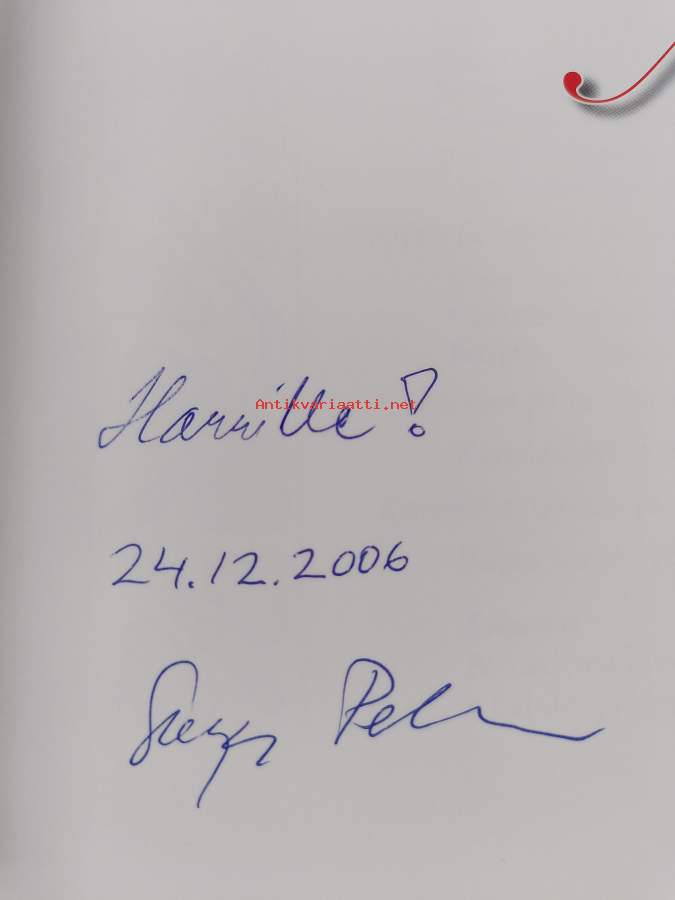 Harrille!
Antikvariaatti.net
24.12.2006